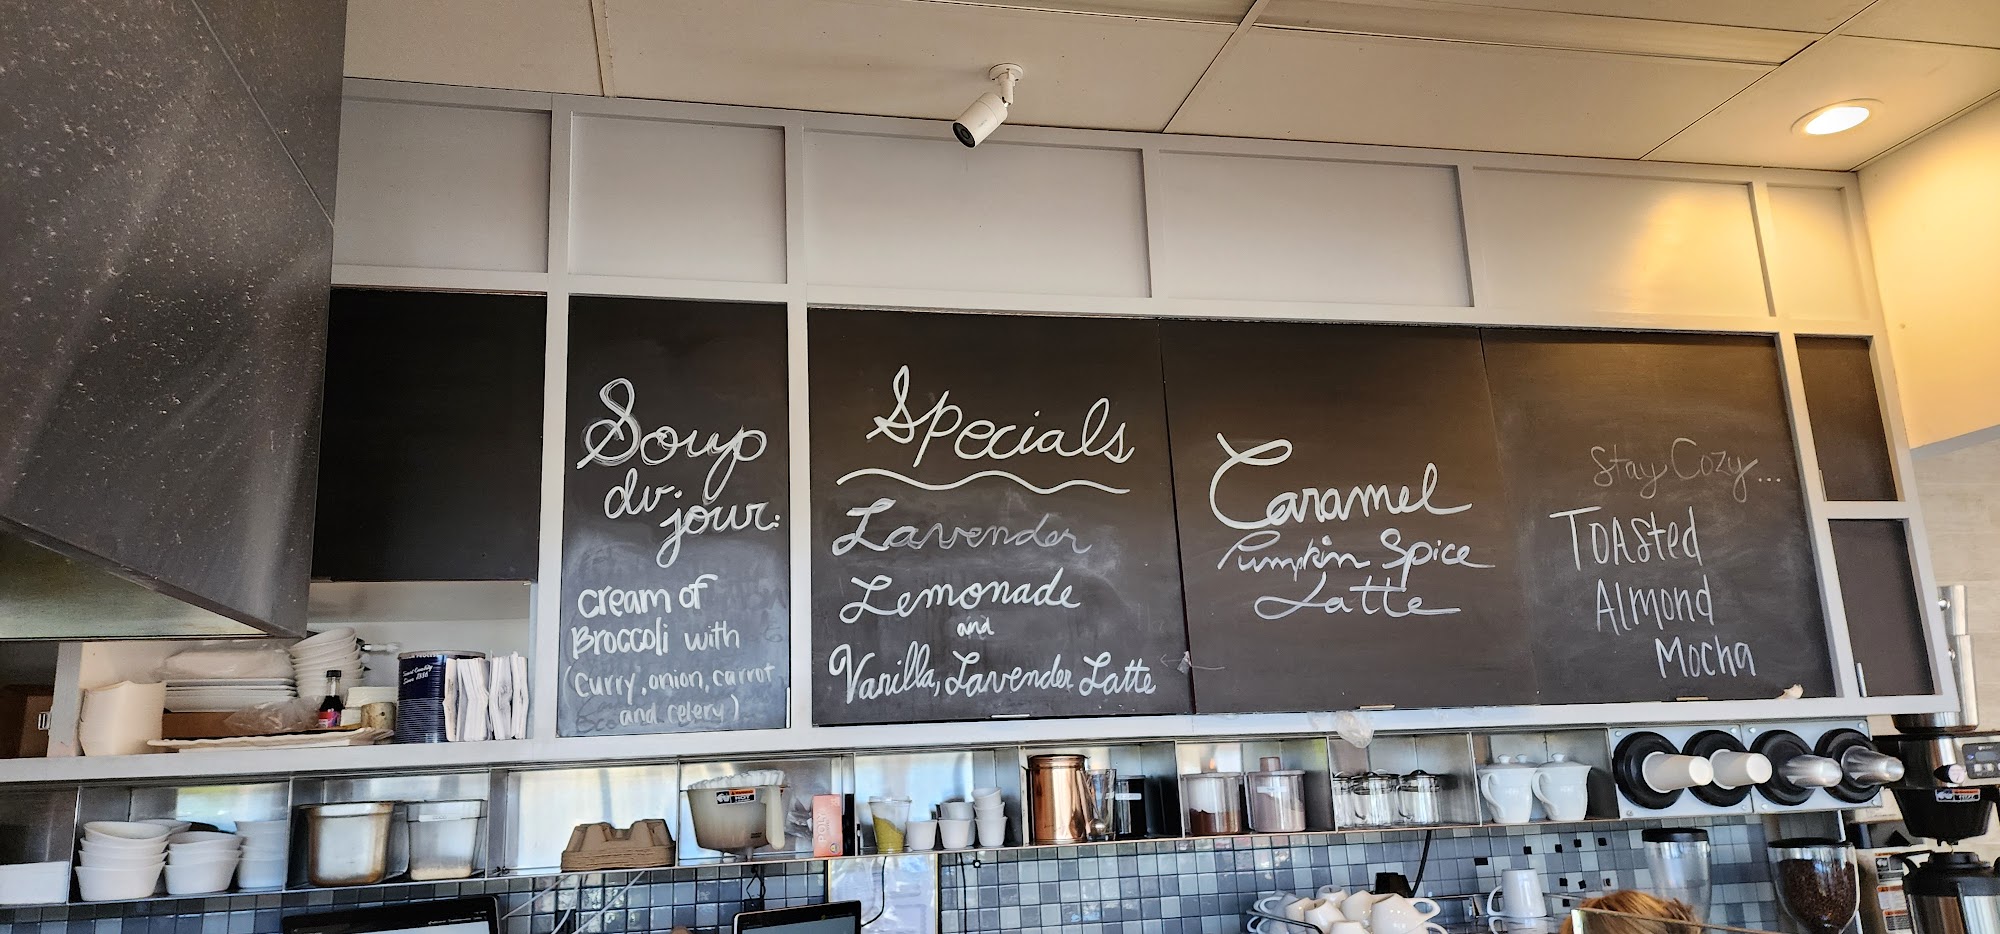 Soup
du jour:
cream of
Broccoli with
(curry, onion, carrot
and celery)
Specials
Lavender
Lemonade
and
Vanilla, Lavender Latte
Caramel
Pumpkin Spice
Latte
Stay Cozy...
Toasted
Almond
Mocha